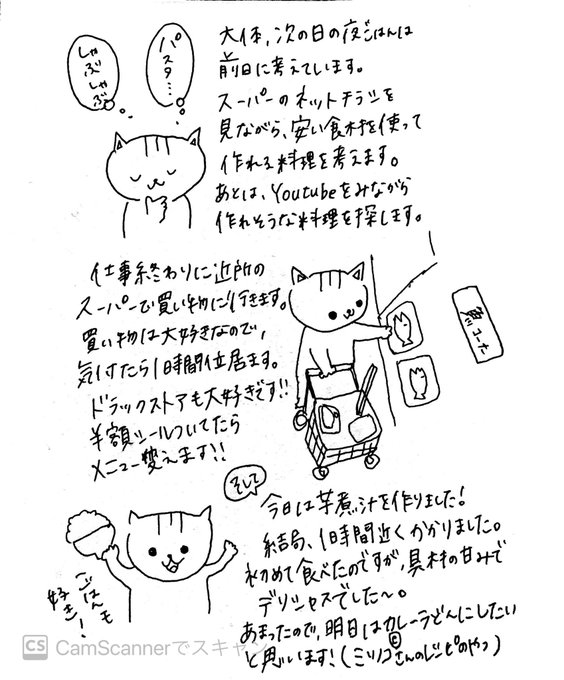 パスタ…
しゃぶしゃぶ
大体、次の日の夜ごはんは
前日に考えています。
スーパーのネットチラシを
見ながら、安い食材を使って
作れる料理を考えます。
あとは、Youtubeをみながら
作れそうな料理を探します。
仕事終わりに近所の
スーパーで買い物に行きます。
買い物は大好きなので、
気付たら1時間位居ます。
ドラックストアも大好きです!!
半額シールついてたら
メニュー変えます!!
魚コーナー
そして
今日は芋煮汁を作りました!
結局、1時間近くかかりました。
初めて食べたのですが、具材の甘みで
デリシャスでした〜。
あまったので、明日はカレーうどんにしたい
と思います!(ミツノコ©さんのレシピのやつ)
ごはんも
好き!
CS CamScannerでスキャン